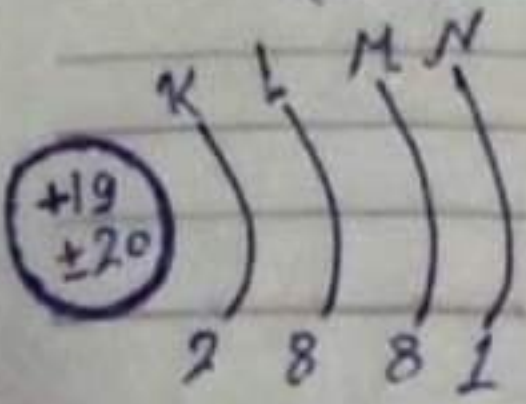 K L M N
+19
±20
2 8 8 1